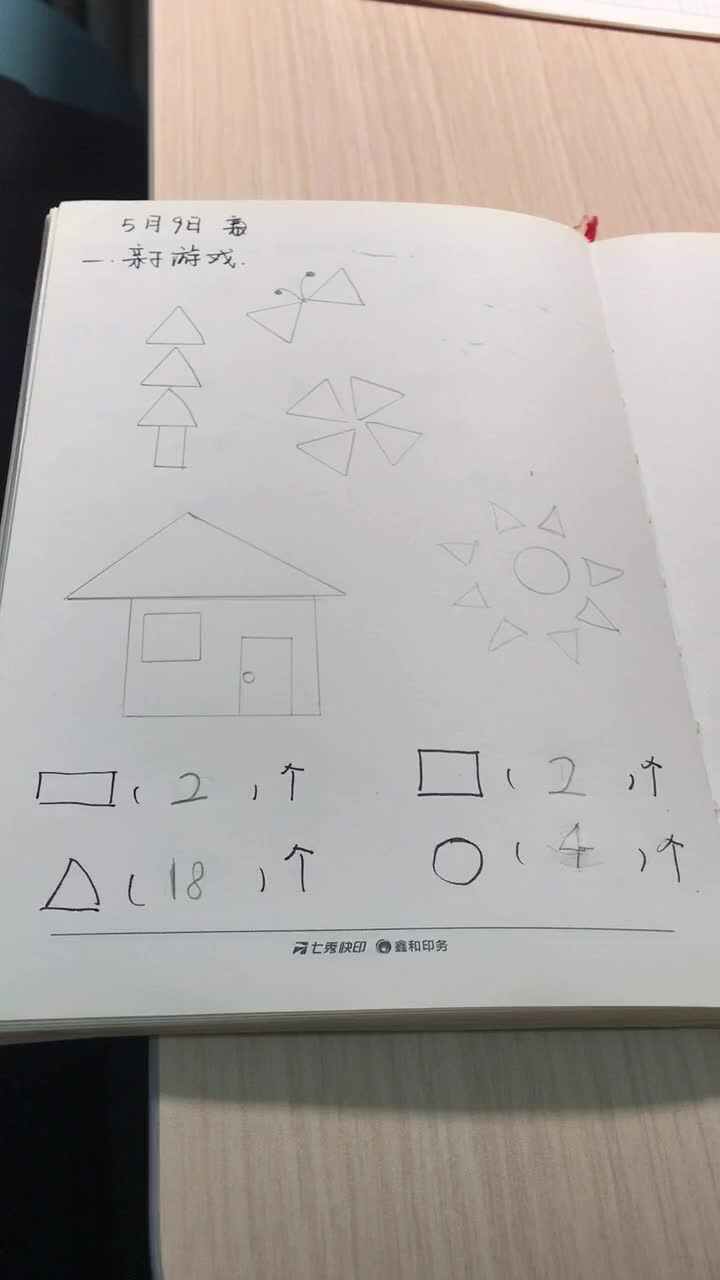 5月9日
一. 亲子游戏.
( 2 )个
( 2 )个
( 18 )个
( 4 )个
七秀快印 鑫和印务